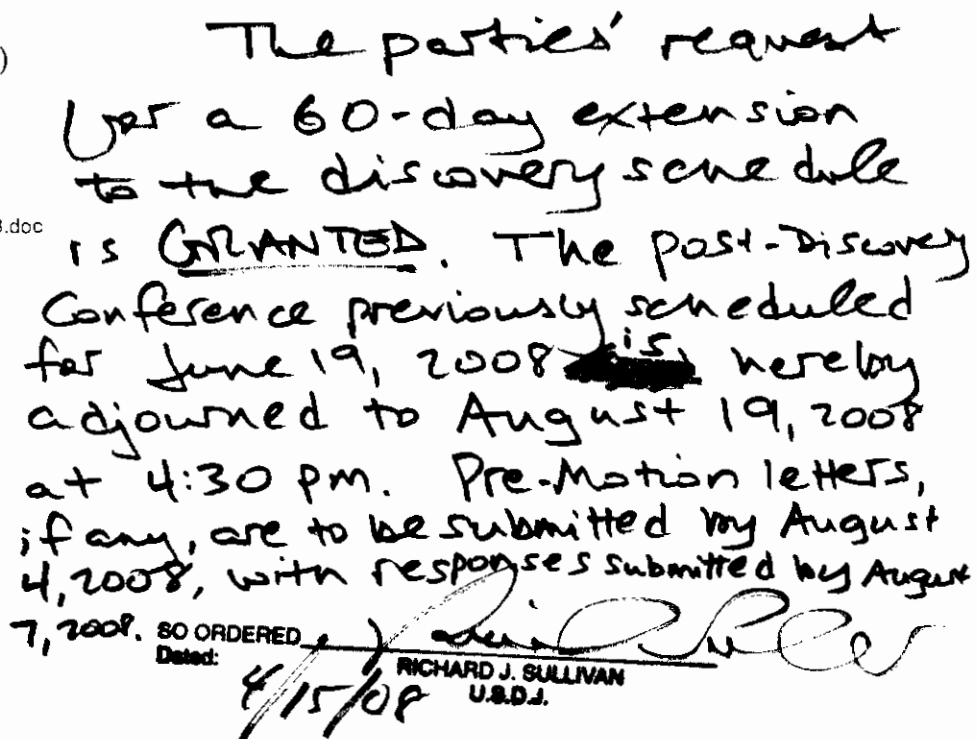 The parties' request
)
for a 60-day extension
to the discovery schedule
3.doc
is GRANTED. The post-Discovery
Conference previously scheduled
for June 19, 2008 is hereby
adjourned to August 19, 2008
at 4:30 pm. Pre-Motion letters,
if any, are to be submitted by August
4, 2008, with responses submitted by August
7, 2008. SO ORDERED
Dated:
4/15/08
RICHARD J. SULLIVAN
U.S.D.J.